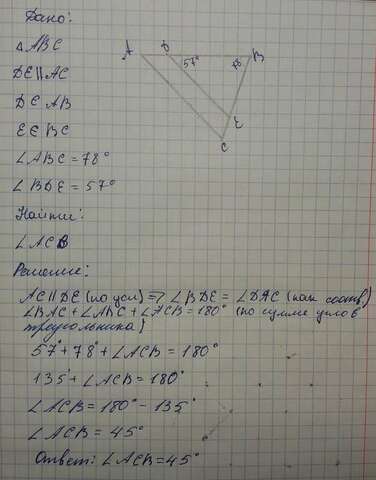 Дано:
△ABC
DE||AC
D∈AB
E∈BC
∠ABC=78°
∠BDE=57°
Найти:
∠ACB
Решение:
A D B
57° 78°
E
C
AC||DE (по усл) => ∠BDE=∠DAC (как соотв)
∠BAC+∠ABC+∠ACB=180° (по сумме углов
треугольника)
57°+78°+∠ACB=180°
135°+∠ACB=180°
∠ACB=180°-135°
∠ACB=45°
Ответ: ∠ACB=45°